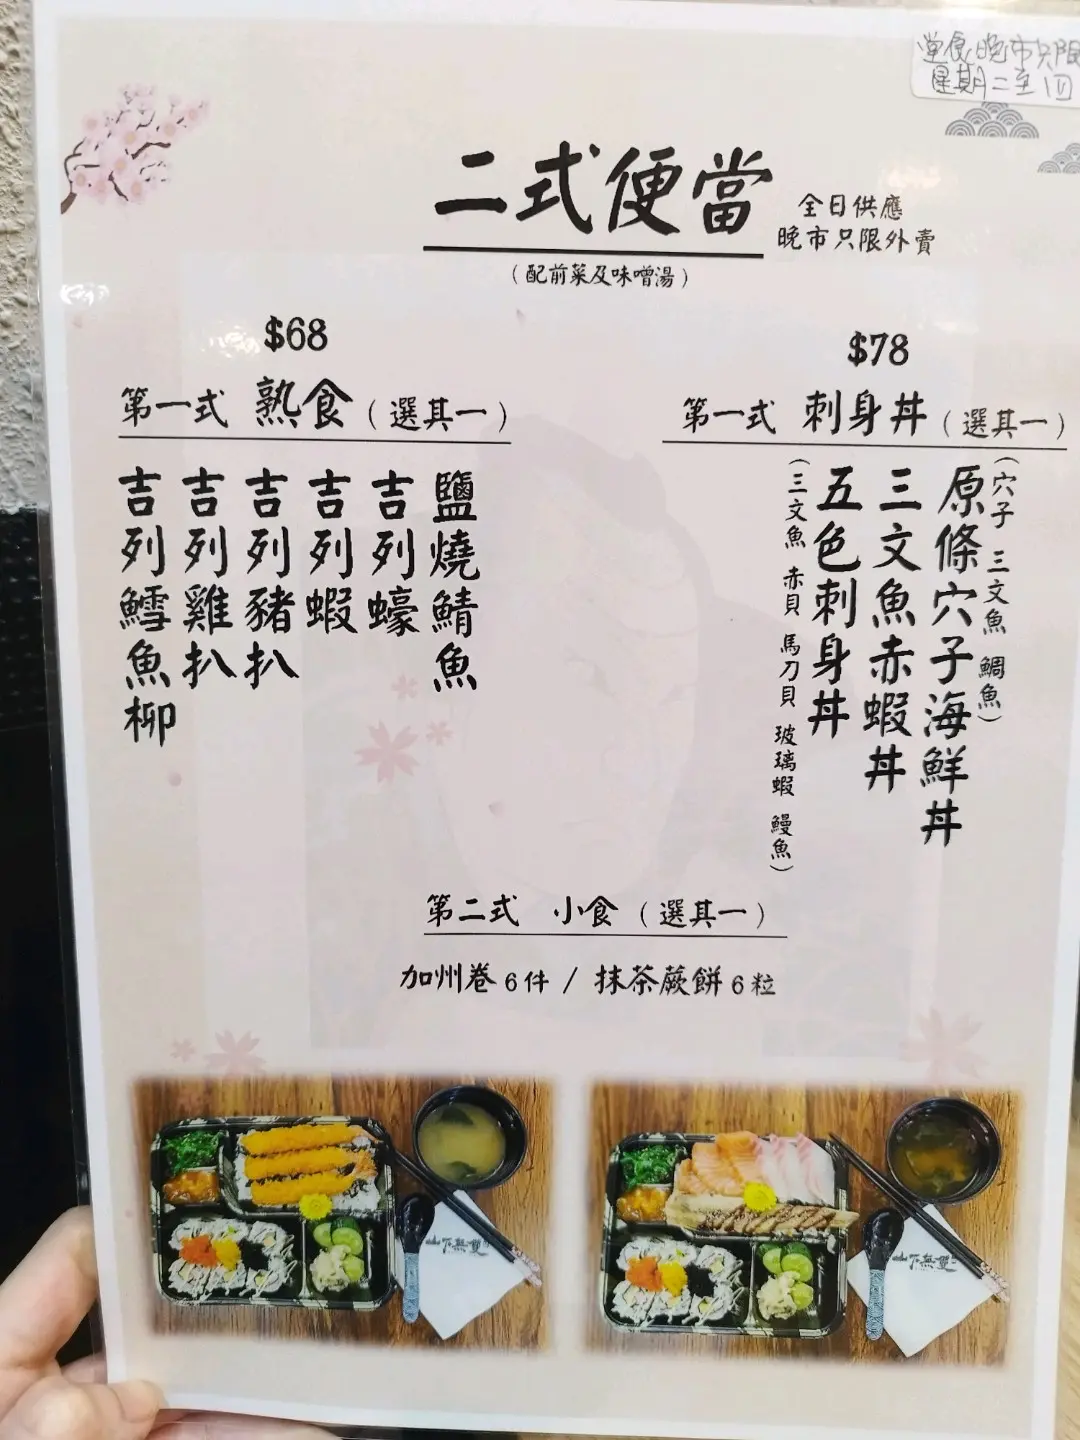 堂食晚市只限
星期二至四
二式便當
全日供應
晚市只限外賣
（配前菜及味噌湯）
$68
第一式 熟食（選其一）
鹽燒鯖魚
吉列蠔
吉列蝦
吉列豬扒
吉列雞扒
吉列鱈魚柳
$78
第一式 刺身丼（選其一）
（穴子 三文魚 鯛魚）
原條穴子海鮮丼
三文魚赤蝦丼
五色刺身丼
（三文魚 赤貝 馬刀貝 玻璃蝦 鰻魚）
第二式 小食（選其一）
加州卷6件 / 抹茶蕨餅6粒
山下無雙
山下無雙